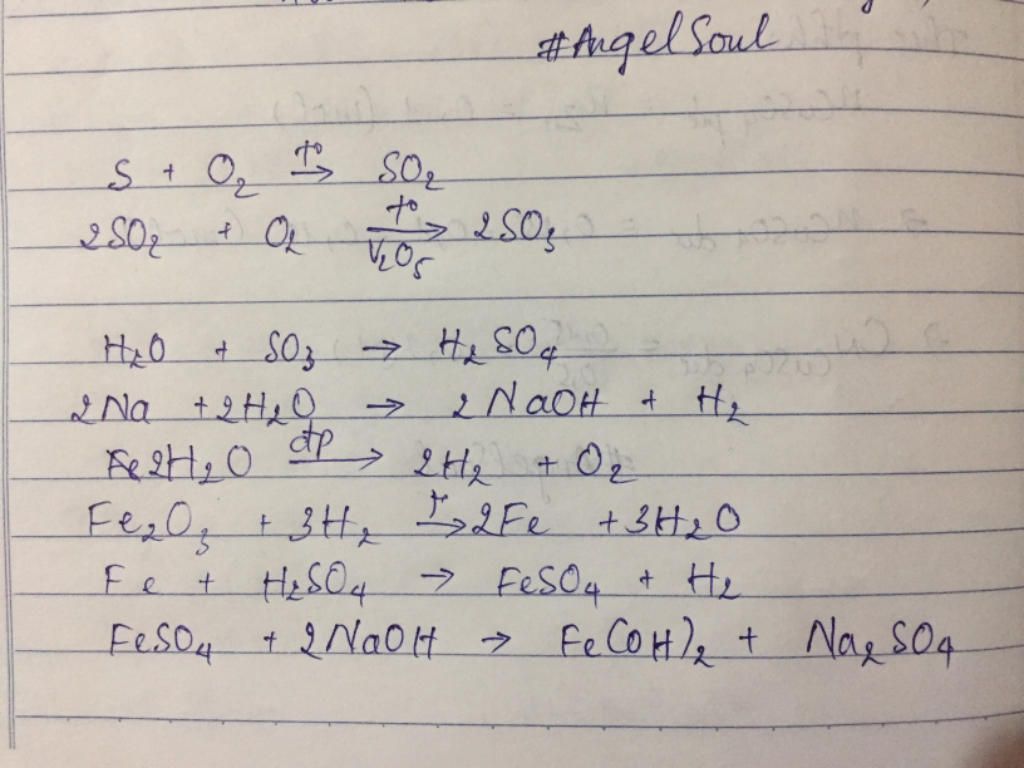 #AngelSoul
S + O₂ →(t°) SO₂
2SO₂ + O₂ →(t°, V₂O₅) 2SO₃
H₂O + SO₃ → H₂SO₄
2Na + 2H₂O → 2NaOH + H₂
2H₂O →(dp) 2H₂ + O₂
Fe₂O₃ + 3H₂ →(t°) 2Fe + 3H₂O
Fe + H₂SO₄ → FeSO₄ + H₂
FeSO₄ + 2NaOH → Fe(OH)₂ + Na₂SO₄